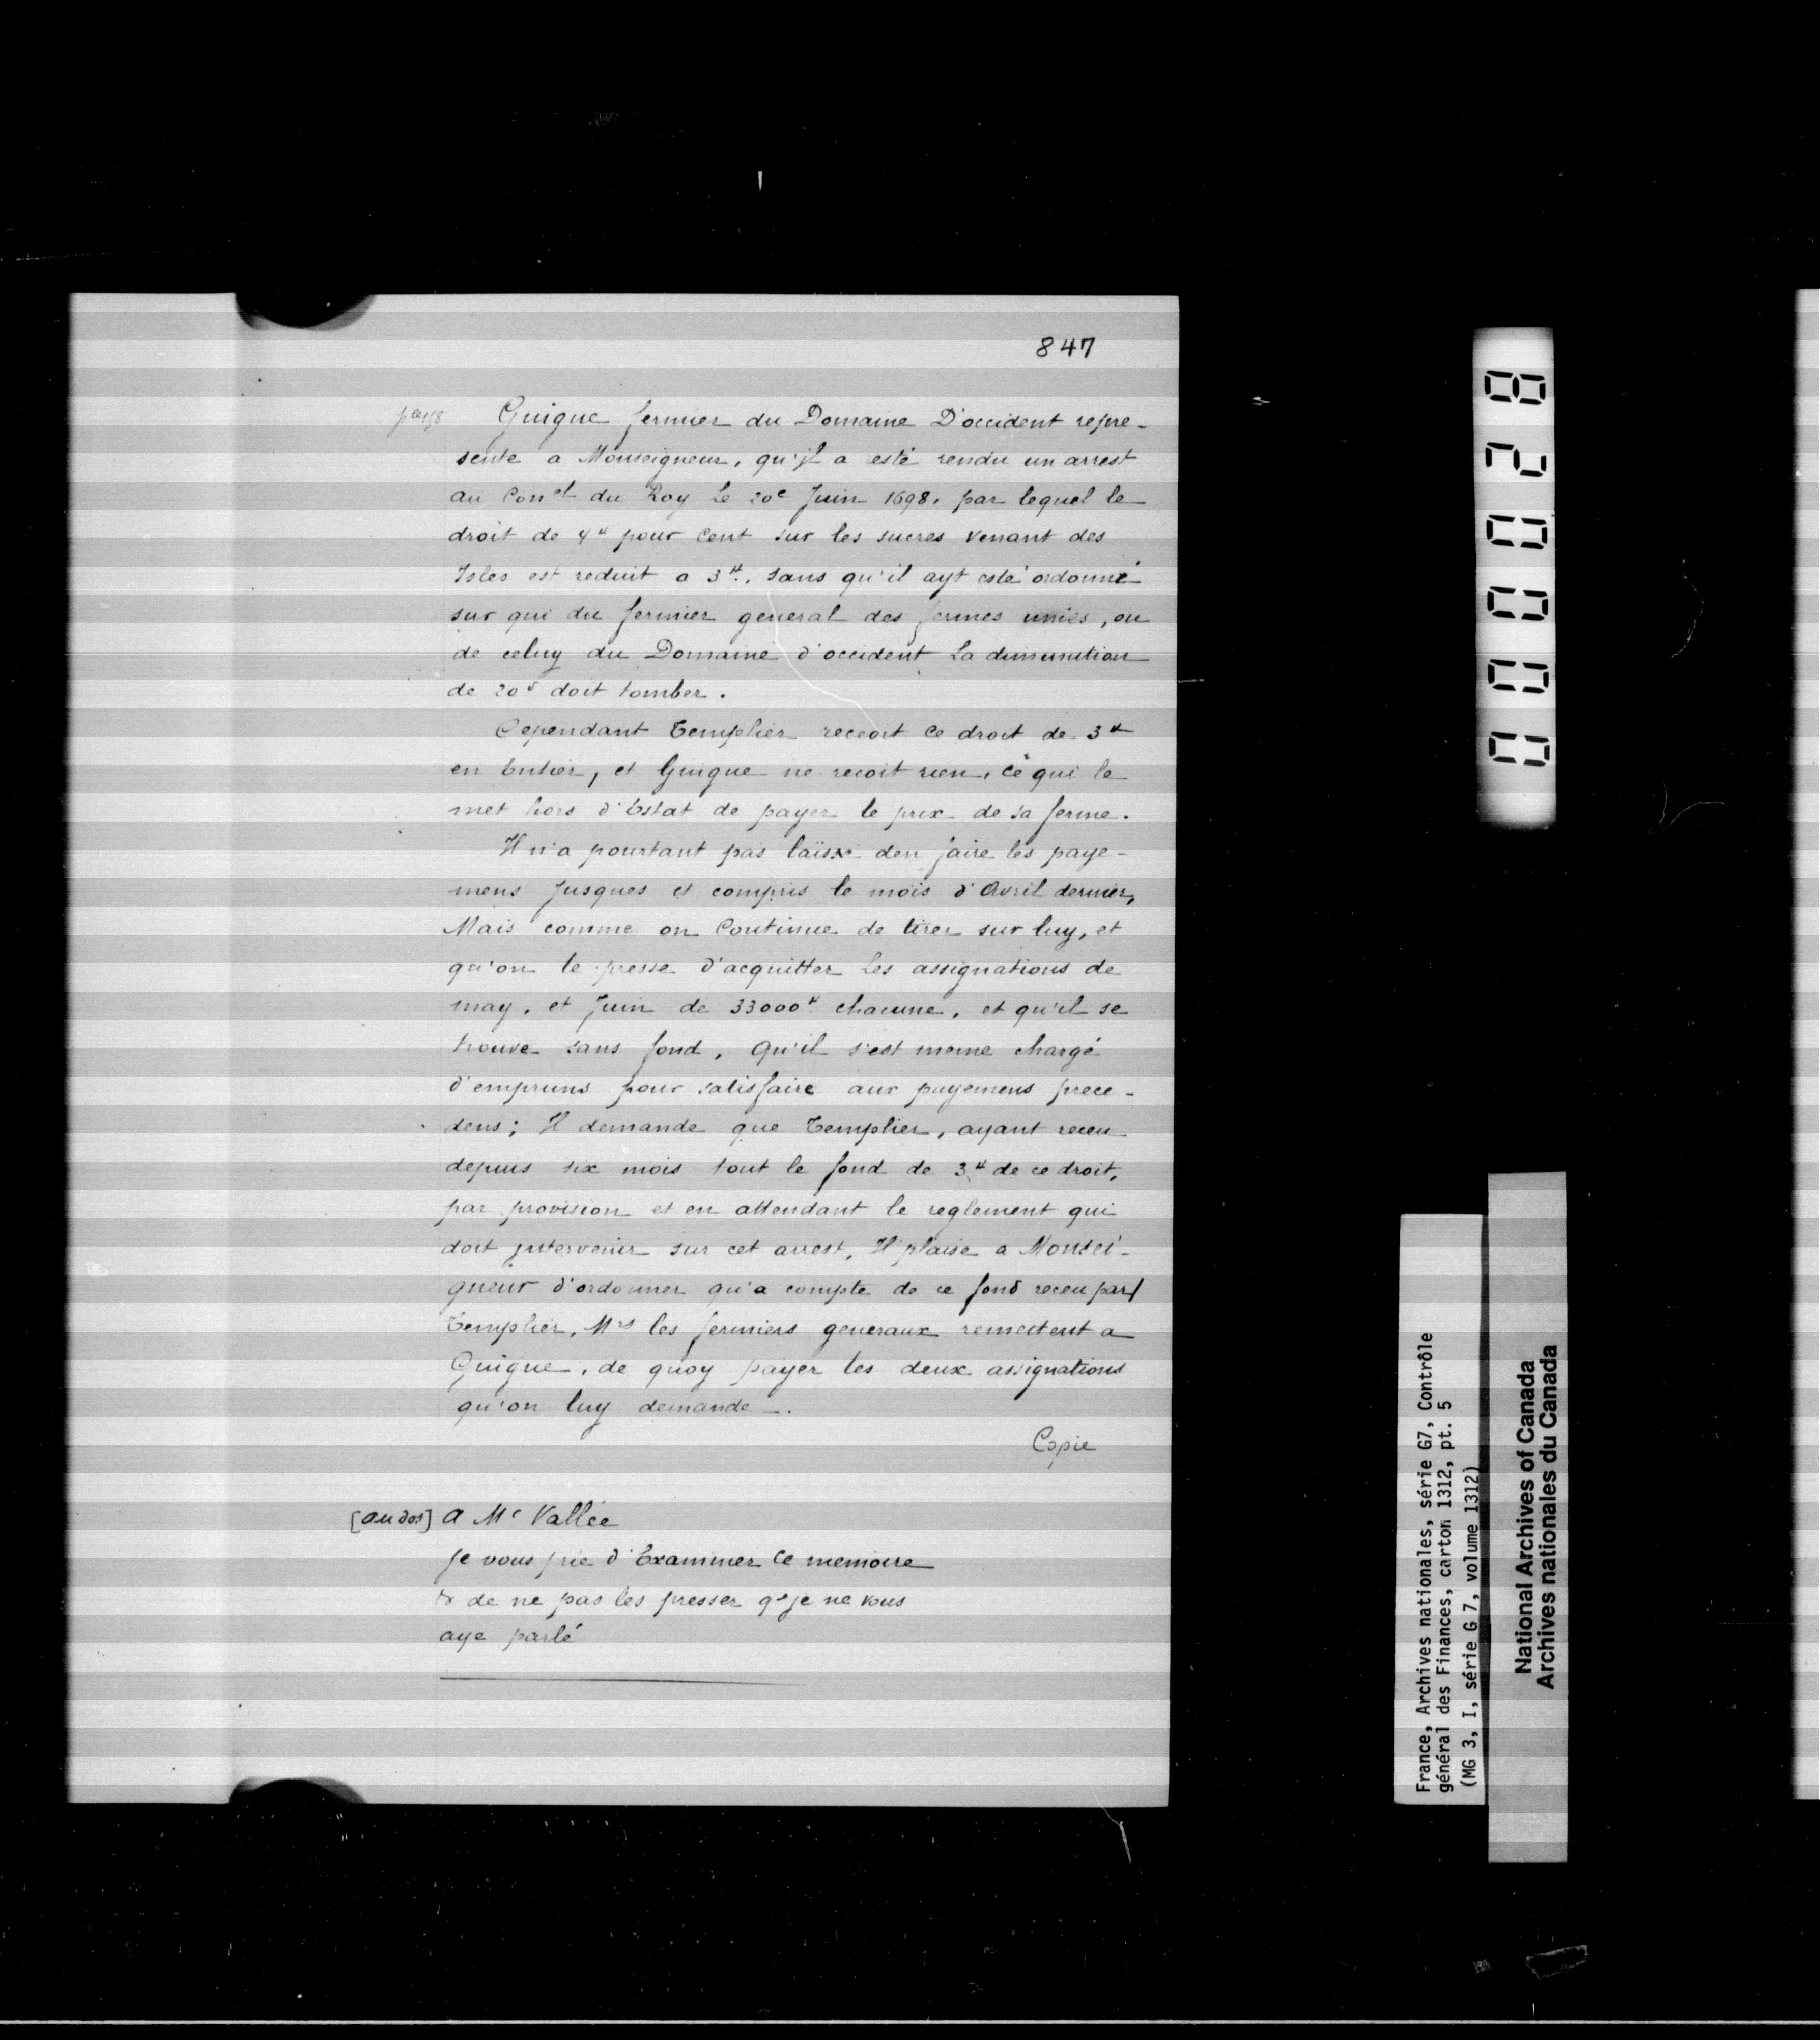 847
Guigue fermier du Domaine D'occident repre-
sente a Monseigneur, qu'jl a esté rendu un arrest
au Con.el du Roy Le 20e Juin 1698, par lequel le
droit de 4# pour Cent sur les sucres venant des
Isles est reduit a 3#. sans qu'il ayt esté ordonné
sur qui du fermier general des fermes unies, ou
de celuy du Domaine d'occident La diminution
de 20s doit tomber.
Cependant Templier reccoit ce droit de 3#
en Entier, et Guigue ne recoit rien, ce qui le
met hors d'Estat de payer le prix de sa ferme.
Il n'a pourtant pas laissé den faire les paye-
mens Jusques et compris le mois d'Avril dernier,
Mais comme on Continue de tirer sur luy, et
qu'on le presse d'acquitter Les assignations de
may, et Juin de 33000# chacune, et qu'il se
trouve sans fond, qu'il s'est meme chargé
d'empruns pour satisfaire aux payemens prece-
dens; Il demande que Templier, ayant receu
depuis six mois tout le fond de 3# de ce droit,
par provision et en attendant le reglement qui
doit jntervenir sur cet arrest, Il plaise a Monsei-
gneur d'ordonner qu'a compte de ce fond receu par
Templier, Mrs les fermiers generaux remettent a
Guigue, de quoy payer les deux assignations
qu'on luy demande.
Copie
[au dos] a Mr Vallée
Je vous prie d'Examiner Ce memoire
& de ne pas les presser qe je ne vous
aye parlé
000028
France, Archives nationales, série G7, Contrôle
général des Finances, carton 1312, pt. 5
(MG 3, I, série G 7, volume 1312)
National Archives of Canada
Archives nationales du Canada